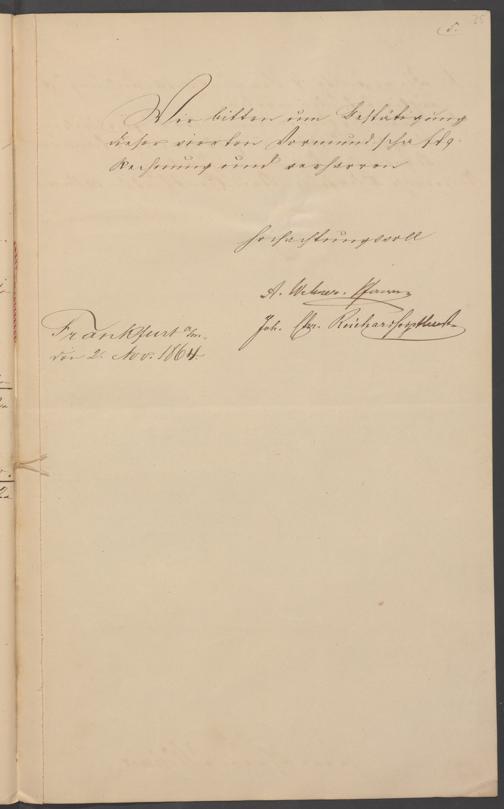 5.
25
Wir bitten um Bestätigung
dieser vierten Vormundschafts-
Rechnung und verharren
Hochachtungsvoll
A. Weber.
Joh. Chr.
Frankfurt a/m.
den 2. Nov. 1864.